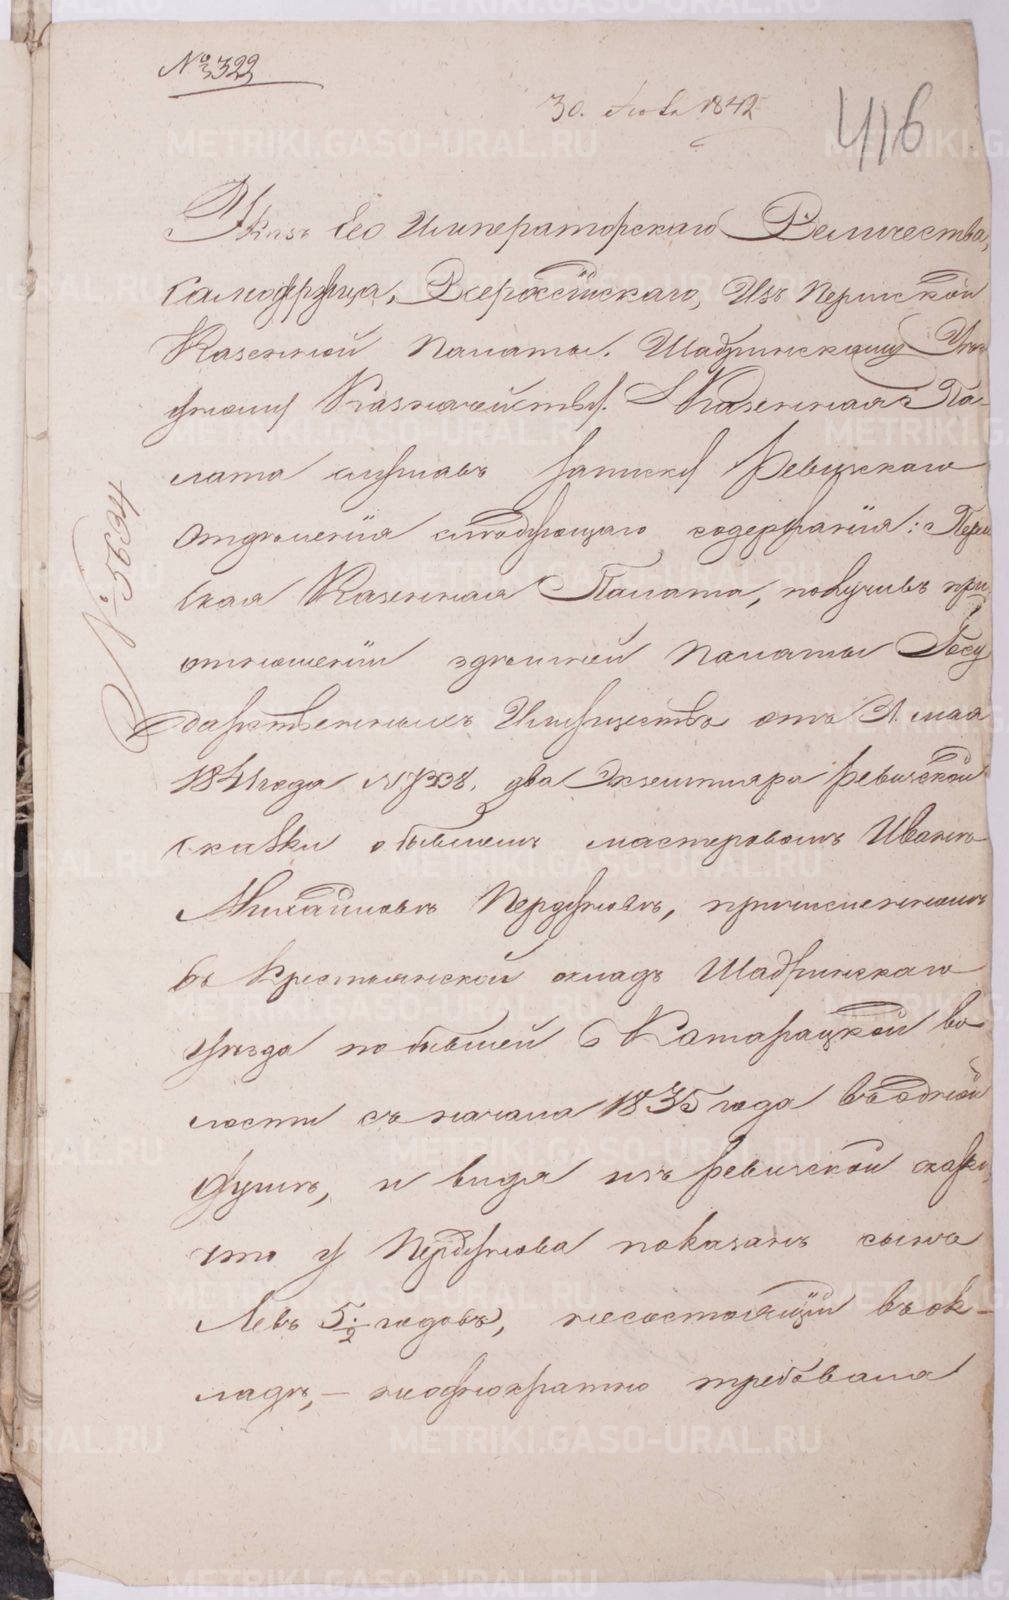 № 3322
30. 1842
416
Указъ Его Императорскаго Величества,
Самодержца, Всероссійскаго, Изъ Пермской
Казенной Палаты. Шадринскому Уѣз
дному Казначейству. Казенная Па-
лата слушавъ записку Ревизскаго
Отдѣленія слѣдующаго содержанія: Перм
ская Казенная Палата, получивъ при
отношеніи здѣшней Палаты Госу
дарственныхъ Имуществъ отъ 31 мая
1841 года № 7338, два Экземпляра ревизской
сказки о бывшемъ мастеровомъ Иванѣ
Михайловѣ Пердуновѣ, причисленномъ
въ Крестьянской окладъ Шадринскаго
уѣзда по бывшей Катарацкой во
лости съ начала 1835 года въ одной
душѣ, и видя изъ ревизской сказки,
что у Пердунова показанъ сынъ
Левъ 5 1/2 годовъ, несостоящій въ ок-
ладѣ, — неоднократно требовала
№ 5634
METRIKI.GASO-URAL.RU